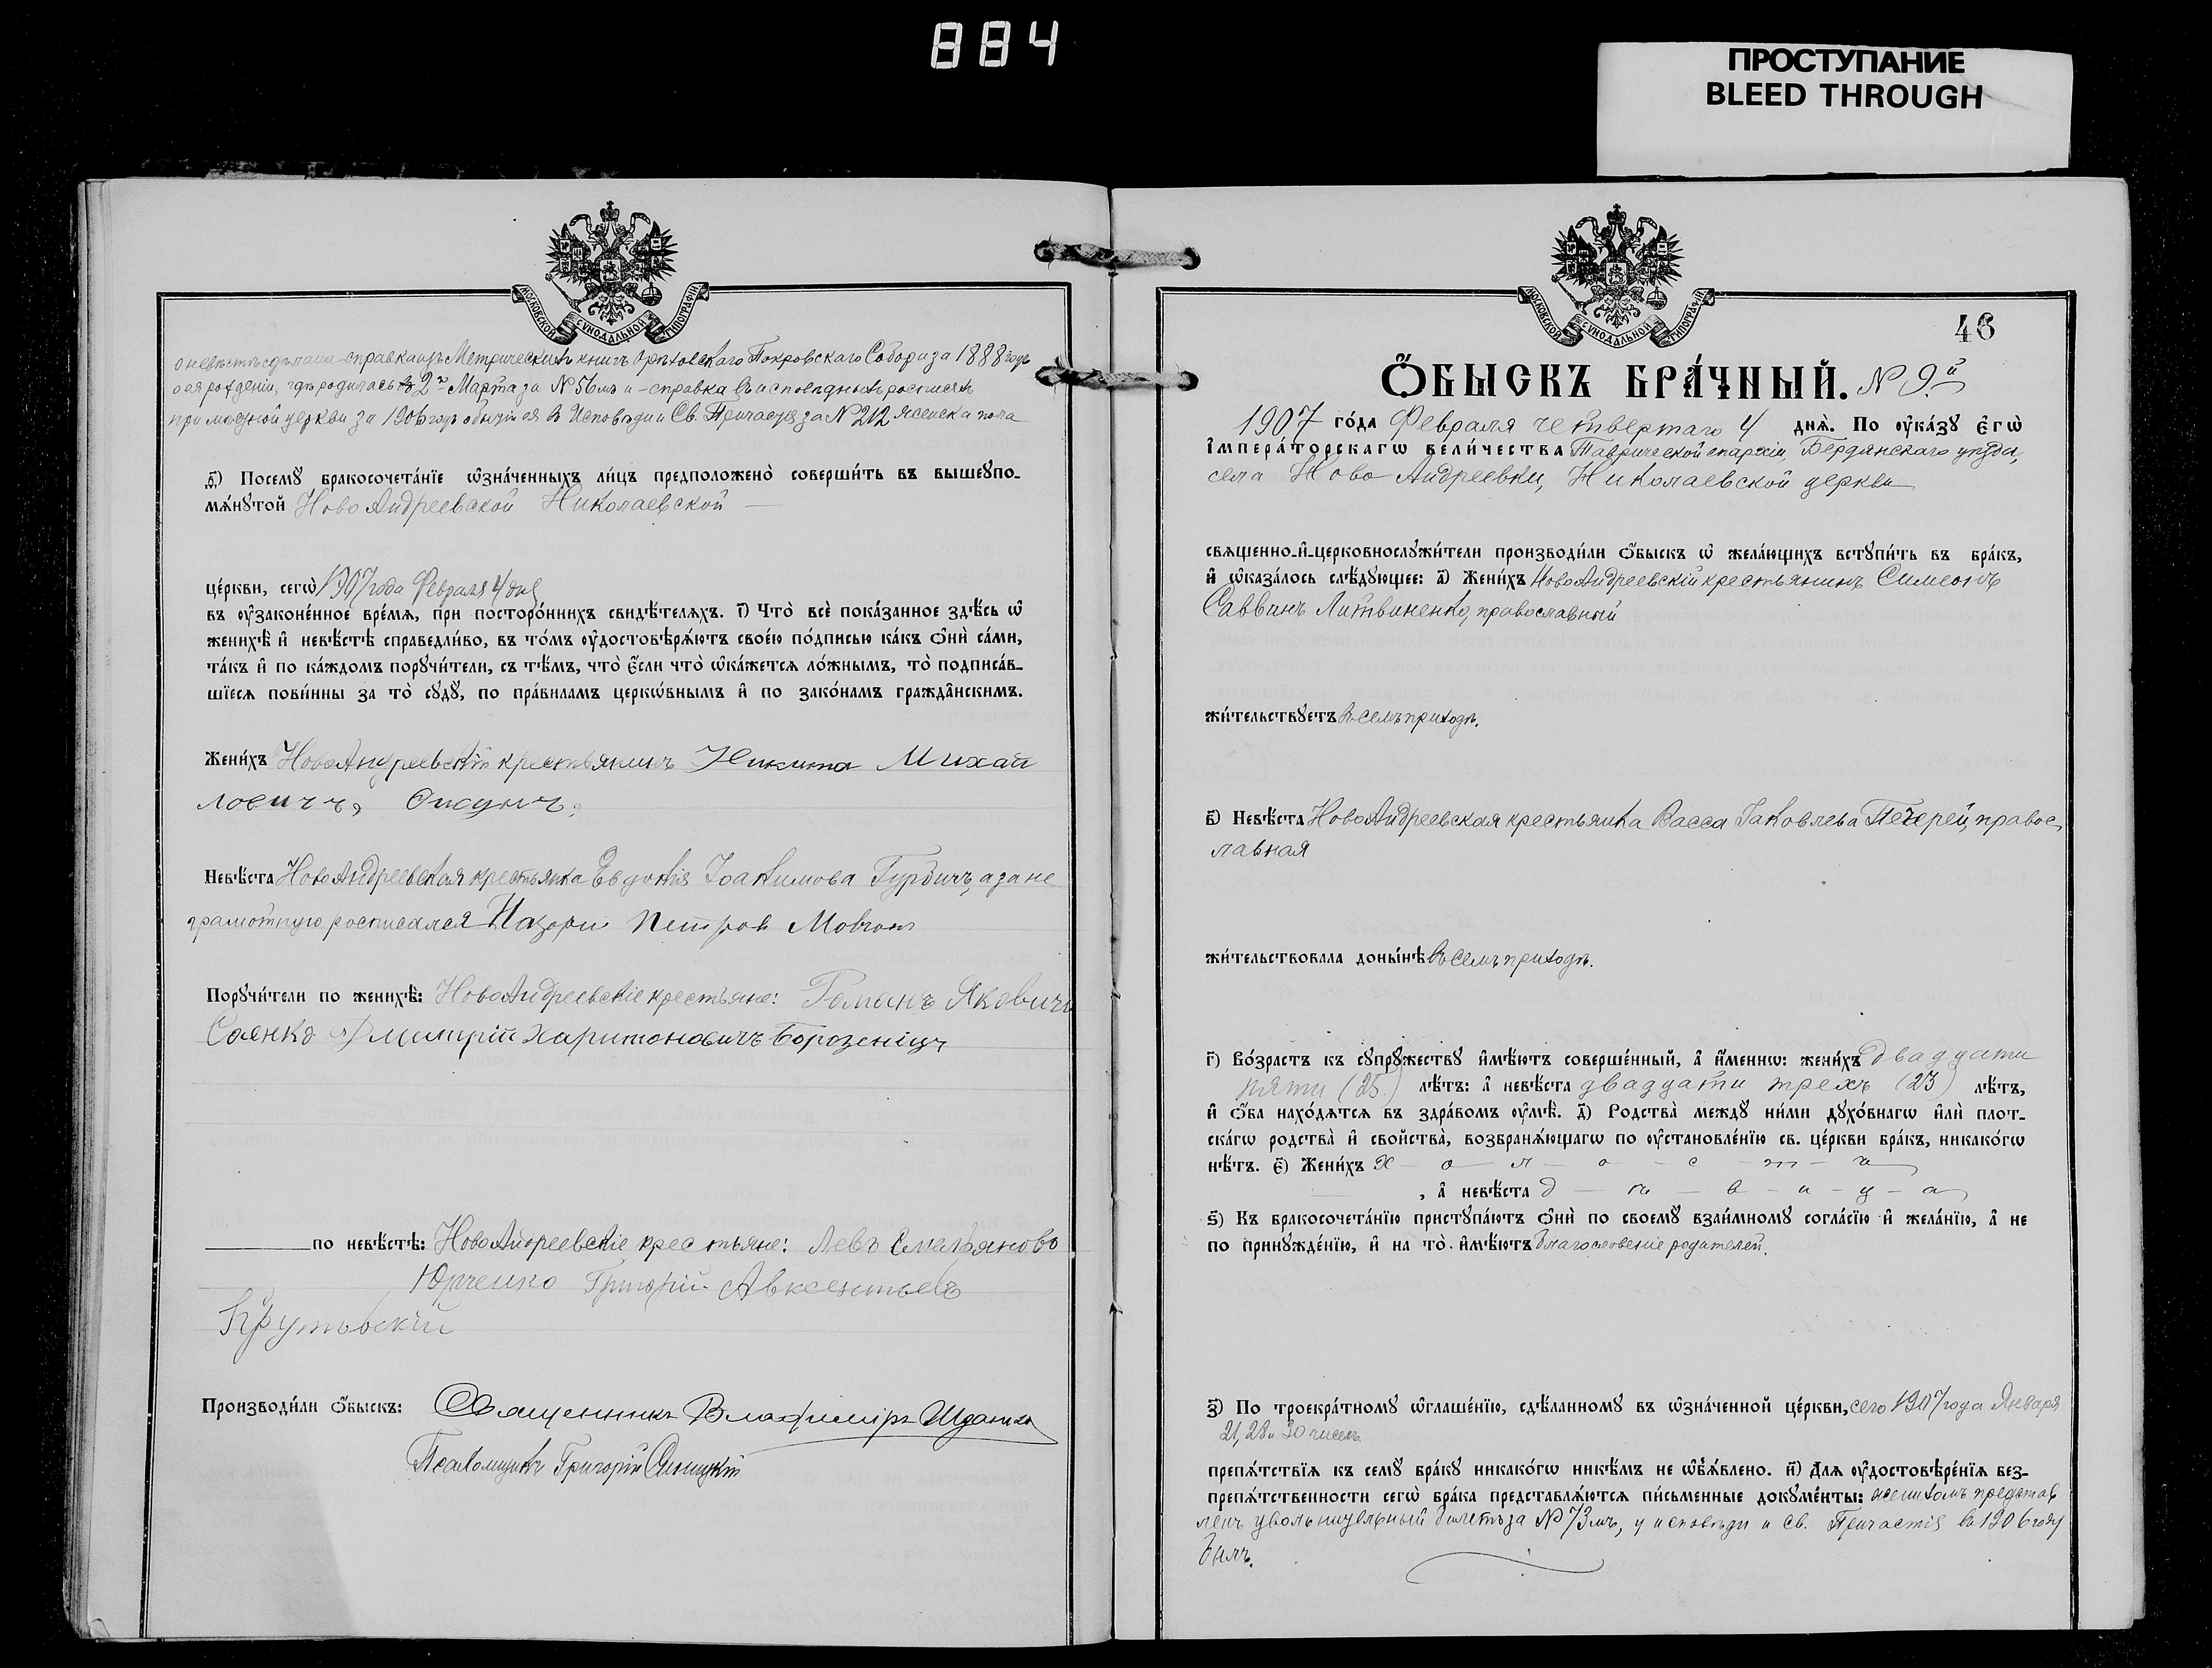 884
ПРОСТУПАНИЕ
BLEED THROUGH
МОСКОВСКОЙ СѴНОДАЛЬНОЙ ТИПОГРАФІИ
о невѣстѣ сдѣлана справка изъ Метрическихъ книгъ Орѣховскаго Покровскаго Собора за 1888 годъ
о ея рожденіи, гдѣ родилась 2го Марта за № 56мъ и справка въ исповѣдныхъ росписяхъ
приходской церкви за 1906 годъ о бытіи ея въ Исповѣди и Св. Причастія за № 212 женска пола
д҃) Посемꙋ бракосочета́нїе ѡ҆зна́ченныхъ ли́цъ предположено̀ соверши́ть въ вышеꙋпо-
мѧ́нꙋтой Ново Андреевской Николаевской
це́ркви, сегѡ̀ 1907 года Февраля 4 дня
въ ᲂу҆законе́нное вре́мѧ, при посторо́ннихъ свидѣ́телѧхъ. і҃) Что̀ всѐ пока́занное здѣ́сь ѡ҆
женихѣ̀ и҆ невѣ́стѣ справедли́во, въ то́мъ ᲂу҆достовѣрѧ́ютъ свое́ю по́дписью ка́къ ѻ҆нѝ са́ми,
та́къ и҆ по ка́ждомъ порꙋчи́тели, съ тѣ́мъ, что̀ є҆́сли что̀ ѡ҆ка́жетсѧ ло́жнымъ, то̀ подписа́в-
шїесѧ пови́нны за то̀ сꙋдꙋ̀, по пра́виламъ церко́внымъ и҆ по зако́намъ гражда́нскимъ.
Жени́хъ НовоАндреевскій крестьянинъ Никита Михай
ловичъ,
Невѣ́ста НовоАндреевская крестьянка Евдокія Іоакимова Гурбичъ, а за не
грамотную росписался Назари Петров Мовчан
Порꙋчи́тели по женихѣ̀: НовоАндреевскіе крестьяне: Романъ Яковичъ
Саенко Дмитрій Харитоновичъ
по невѣ́стѣ: НовоАндреевскіе крестьяне: Левъ Емельяновъ
Юрченко Григорій Авксентьевъ
Производи́ли ѻ҆́быскъ: Священникъ Владиміръ
Псаломщикъ Григорій
МОСКОВСКОЙ СѴНОДАЛЬНОЙ ТИПОГРАФІИ
46
Ѻ҆́БЫСКЪ БРА́ЧНЫЙ. № 9.й
1907 го́да Февраля четвертаго 4 днѧ̀. По ᲂу҆ка́зꙋ є҆гѡ̀
і҆мпера́торскагѡ вели́чества Таврической епархіи, Бердянскаго уѣзда,
села Ново Андреевки, Николаевской церкви
свѧщенно-и҆-церковнослꙋжи́тели производи́ли ѻ҆́быскъ ѡ҆ жела́ющихъ встꙋпи́ть въ бра́къ,
и҆ ѡ҆каза́лось слѣ́дꙋющее: а҃) Жени́хъ НовоАндреевскій крестьянинъ Симеонъ
Саввинъ Литвиненко, православный
жи́тельствꙋетъ въ семъ приходѣ.
в҃) Невѣ́ста НовоАндреевская крестьянка Васса Іаковлева Печерей, правос
лавная
жи́тельствовала доны́нѣ въ семъ приходѣ.
г҃) Во́зрастъ къ сꙋпрꙋ́жествꙋ и҆мѣ́ютъ соверше́нный, а҆ и҆́меннѡ: жени́хъ двадцати
пяти (25) лѣ́тъ: а҆ невѣ́ста двадцати трехъ (23) лѣ́тъ,
и҆ ѻ҆́ба нахо́дѧтсѧ въ здра́вомъ ᲂу҆мѣ̀. д҃) Родства̀ междꙋ̀ ни́ми дꙋхо́внагѡ и҆лѝ плот-
ска́гѡ родства̀ и҆ сво́йства, возбранѧ́ющагѡ по ᲂу҆становле́нїю св. це́ркви бра́къ, никако́гѡ
нѣ́тъ. є҃) Жени́хъ х - о - л - о - с - т - ъ
, а҆ невѣ́ста д - ѣ - в - и - ц - а
ѕ҃) Къ бракосочета́нїю пристꙋпа́ютъ ѻ҆нѝ по своемꙋ̀ взаи́мномꙋ согла́сїю и҆ жела́нїю, а҆ не
по принꙋжде́нїю, и҆ на то̀ и҆мѣ́ютъ благословеніе родителей.
з҃) По троекра́тномꙋ ѡ҆глаше́нїю, сдѣ́ланномꙋ въ ѡ҆зна́ченной це́ркви, сего 1907 года Января
21, 28 и 30 чиселъ
препѧ́тствїѧ къ семꙋ̀ бра́кꙋ никако́гѡ никѣ́мъ не ѡ҆б̾ѧ́влено. и҃) Длѧ ᲂу҆достовѣре́нїѧ без-
препѧ́тственности сегѡ̀ бра́ка представлѧ́ютсѧ пи́сьменные докꙋме́нты: женихомъ представ
ленъ увольнительный билетъ за № 73мъ, у исповѣди и Св. Причастія въ 1906 году
былъ.